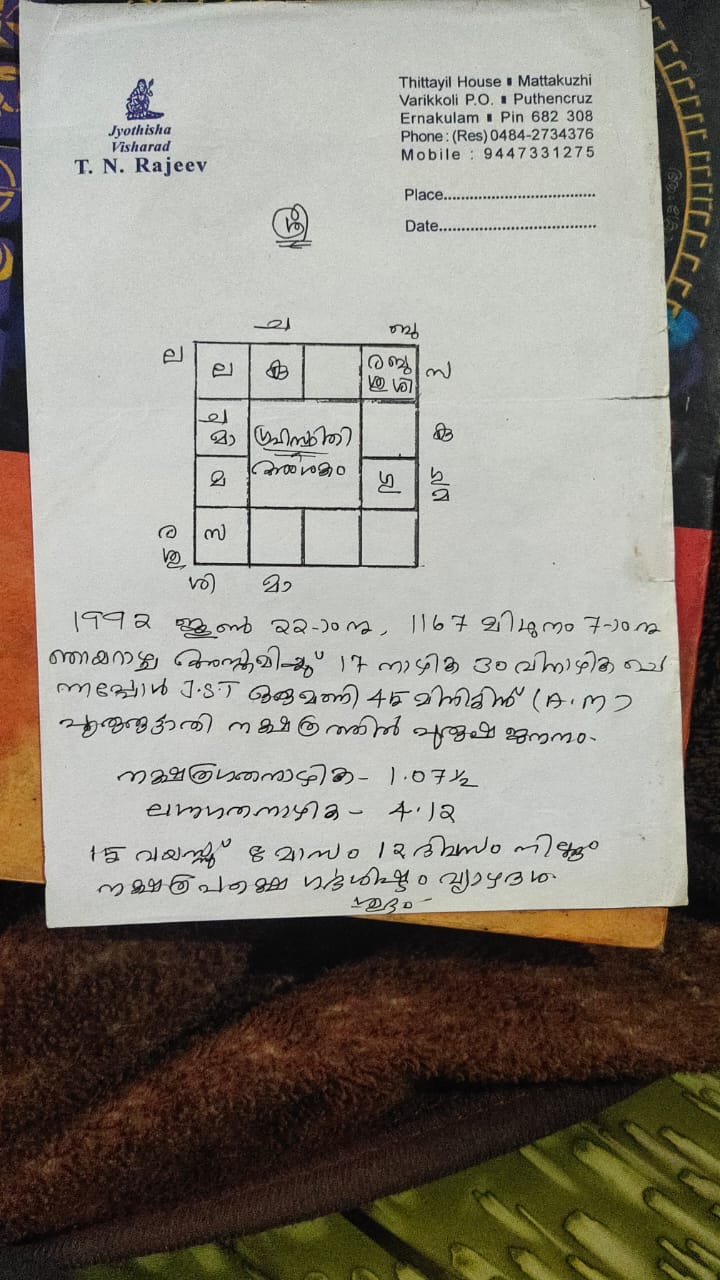 Jyothisha
Visharad
T. N. Rajeev
Thittayil House ▮ Mattakuzhi
Varikkoli P.O. ▮ Puthencruz
Ernakulam ▮ Pin 682 308
Phone : (Res) 0484-2734376
Mobile : 9447331275
Place..................................
Date...................................
ശ്രീ
ച ബു
ല ല കു ര ബു സ
ശു ശി
ച
മാ ഗ്രഹസ്ഥിതി കു
മ അംശകം ഗു ഗു
മ
ര സ
ശു
ശി മാ
1992 ജൂൺ 22-ാംനു, 1167 മിഥുനം 7-ാംനു
ഞായറാഴ്ച അസ്തമിച്ച് 17 നാഴിക 30 വിനാഴിക ചെ
ന്നപ്പോൾ I.S.T ഒരുമണി 45 മിനിട്ടിന് (A.M)
പൂരുരുട്ടാതി നക്ഷത്രത്തിൽ പുരുഷ ജനനം.
നക്ഷത്രഗതനാഴിക - 1.07½
ലഗ്നഗതനാഴിക - 4.12
15 വയസ്സ് 8 മാസം 12 ദിവസം നില്ക്കും
നക്ഷത്ര പക്ഷെ ഗർഭശിഷ്ടം വ്യാഴദശ.
ശുഭം